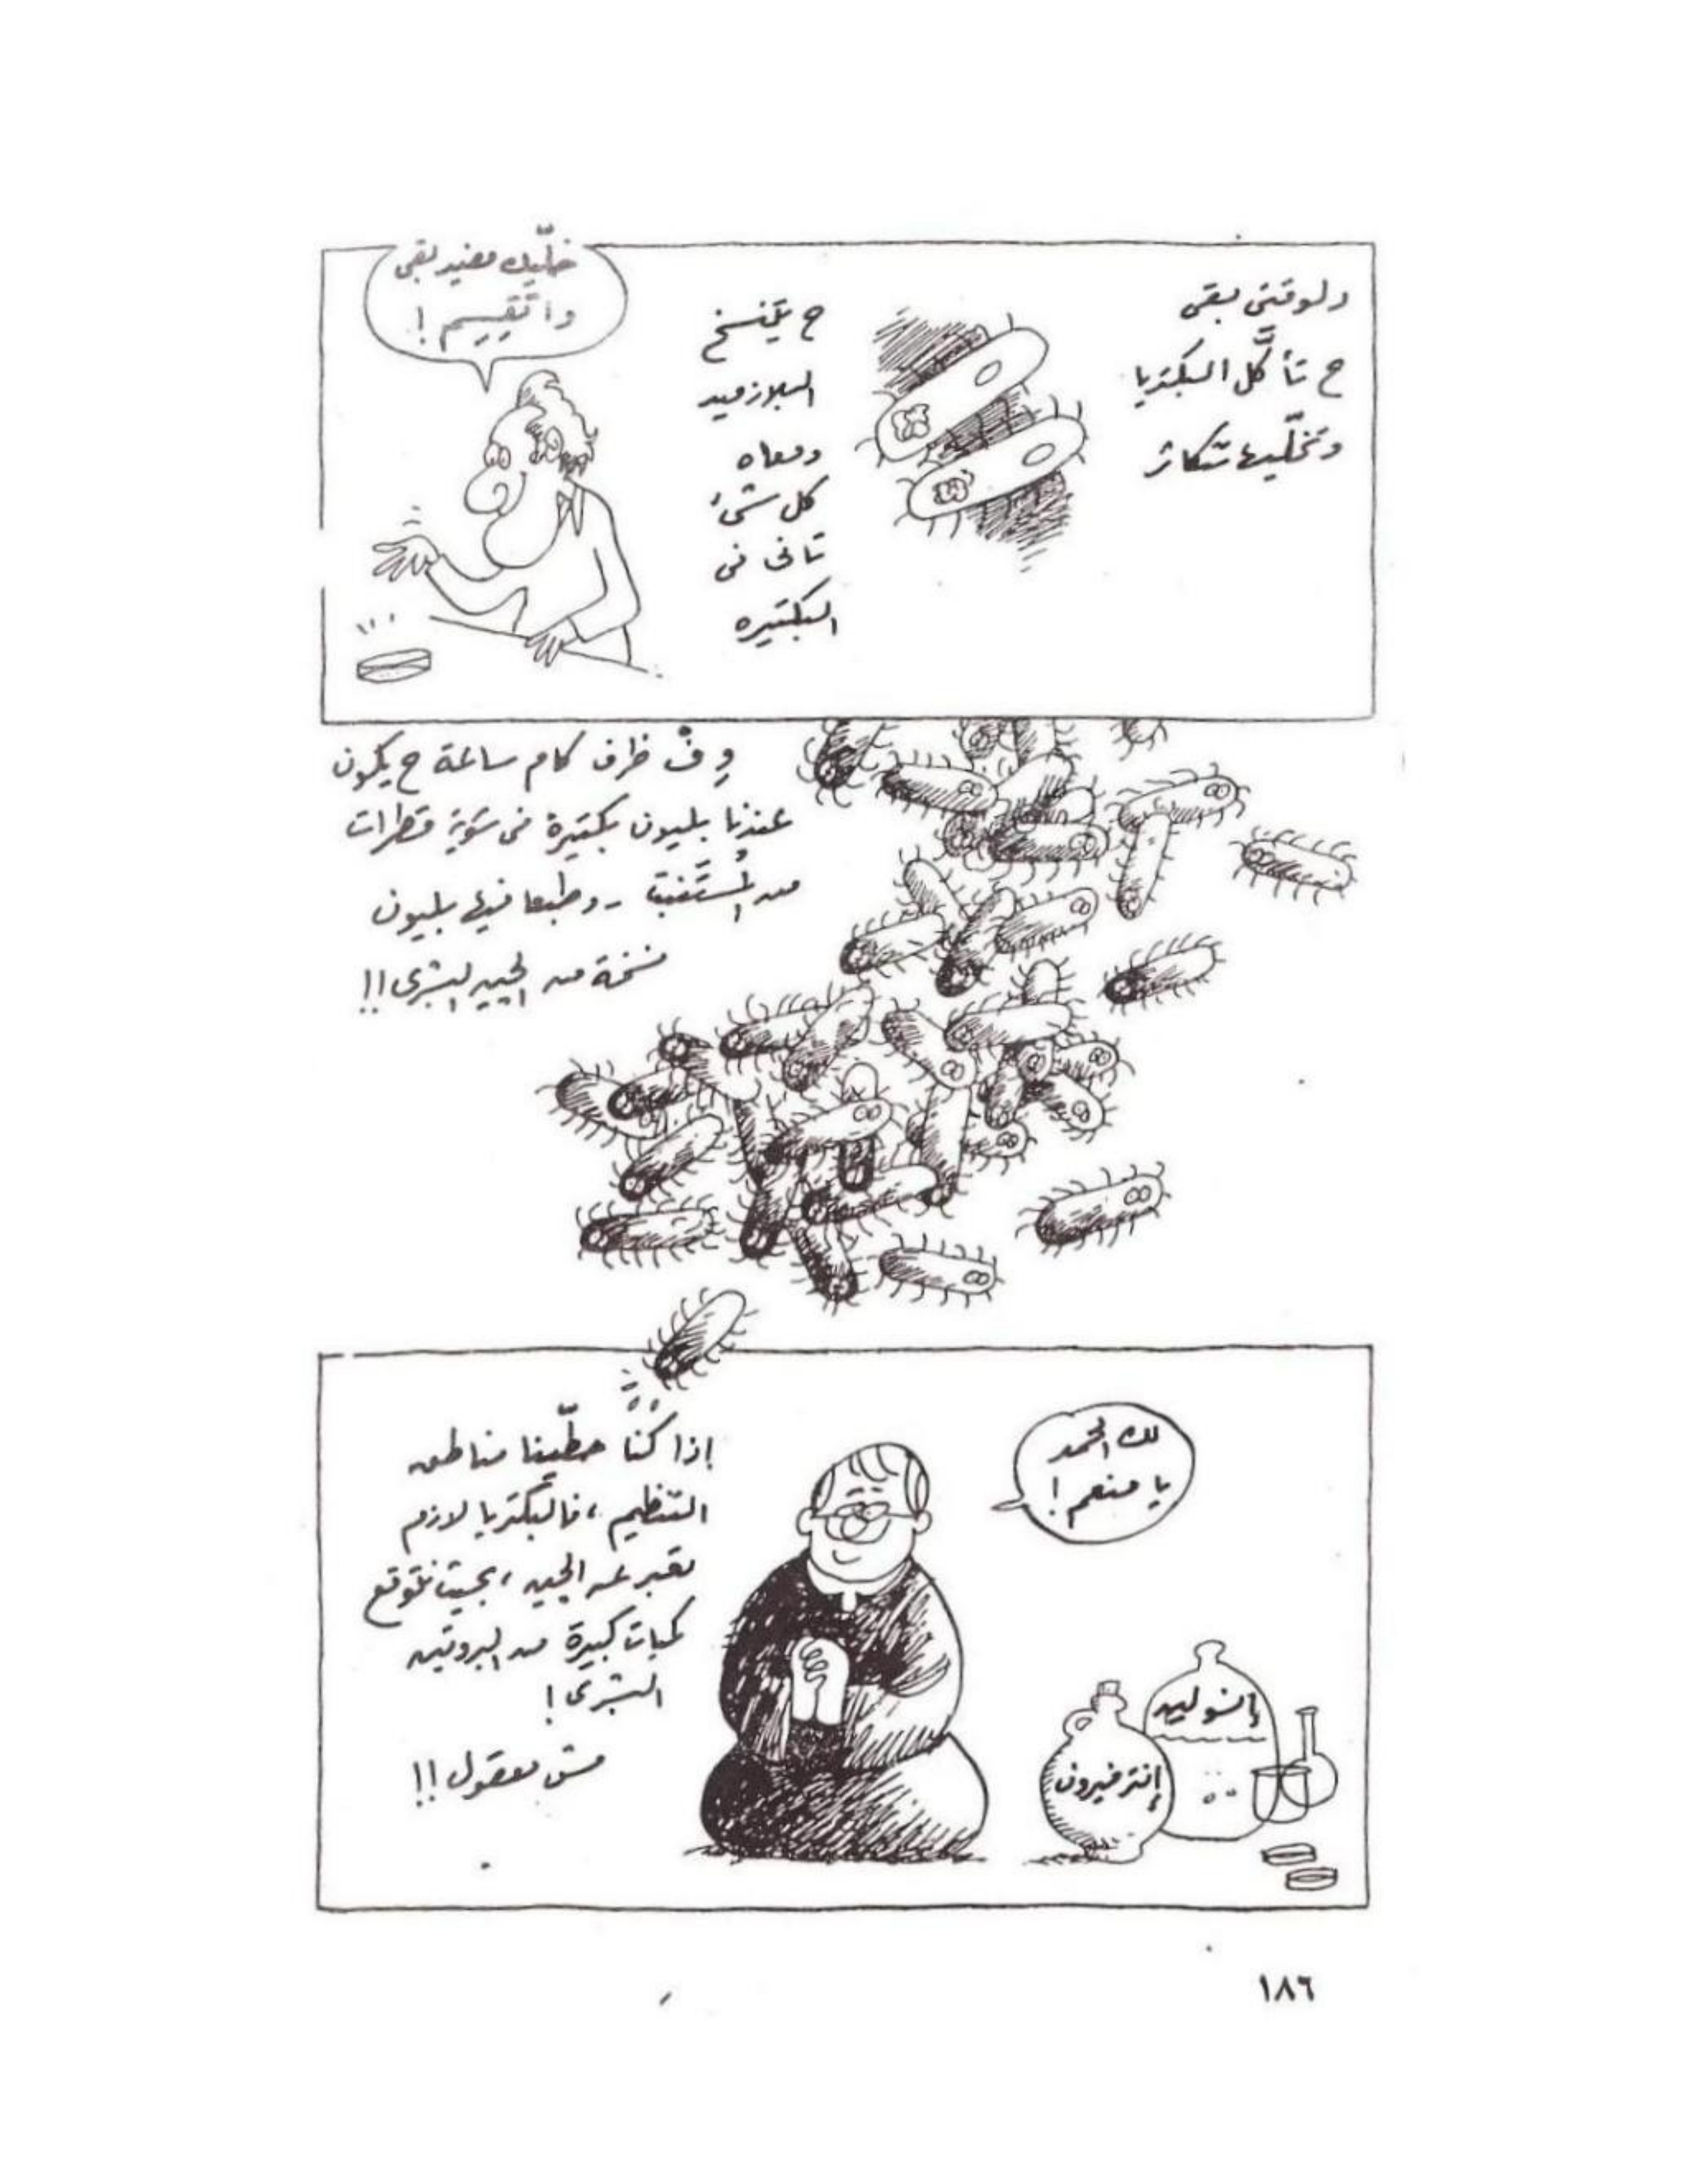 دلوقتى بقى
ح تأكّل البكتريا
وتخلّيها تتكاثر
ح يتنسخ
البلازميد
ومعاه
كل شئ
تانى فى
البكتيره
خلّيك مفيد بقى
واتقسم !
وِ فْ ظرف كام ساعة ح يكون
عندنا بليون بكتيرة فى شوية قطرات
من المُستَنبت -- وطبعا فيها بليون
نسخة من الجين البشرى !!
لك الحمد
يا منعم !
إذا كنّا حطّينا مناطق
التنظيم ، فالبكتريا لازم
تعبر عن الجين ، بحيث نتوقع
كميات كبيرة من البروتين
البشرى !
مش معقول !!
إنسولين
إنترفيرون
١٨٦